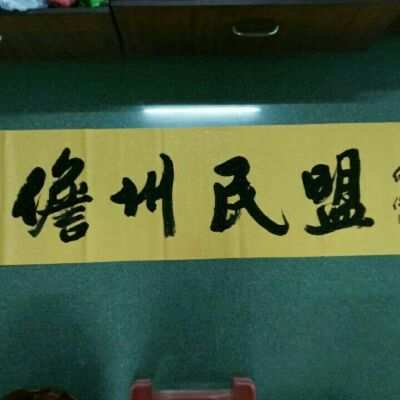 儋州民盟